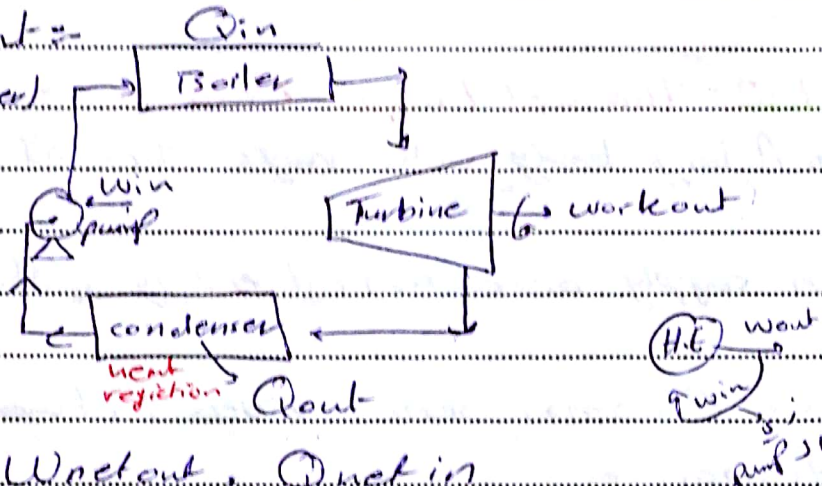 Qin
Boiler
win
pump
Turbine
workout
condenser
heat
regiction
Qout
H.E
wout
win
pump
Wnetout, Qnetin